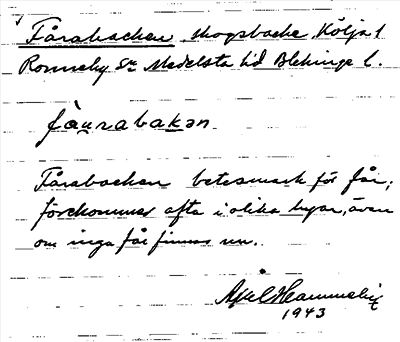 Fårabacken skogsbacke, Kölja 1
Ronneby Sn Medelsta hd Blekinge l.
fåurabakən
Fårabacken betesmark för får,
förekommer ofta i olika byar, även
om inga får finnas nu.
Axel
1943